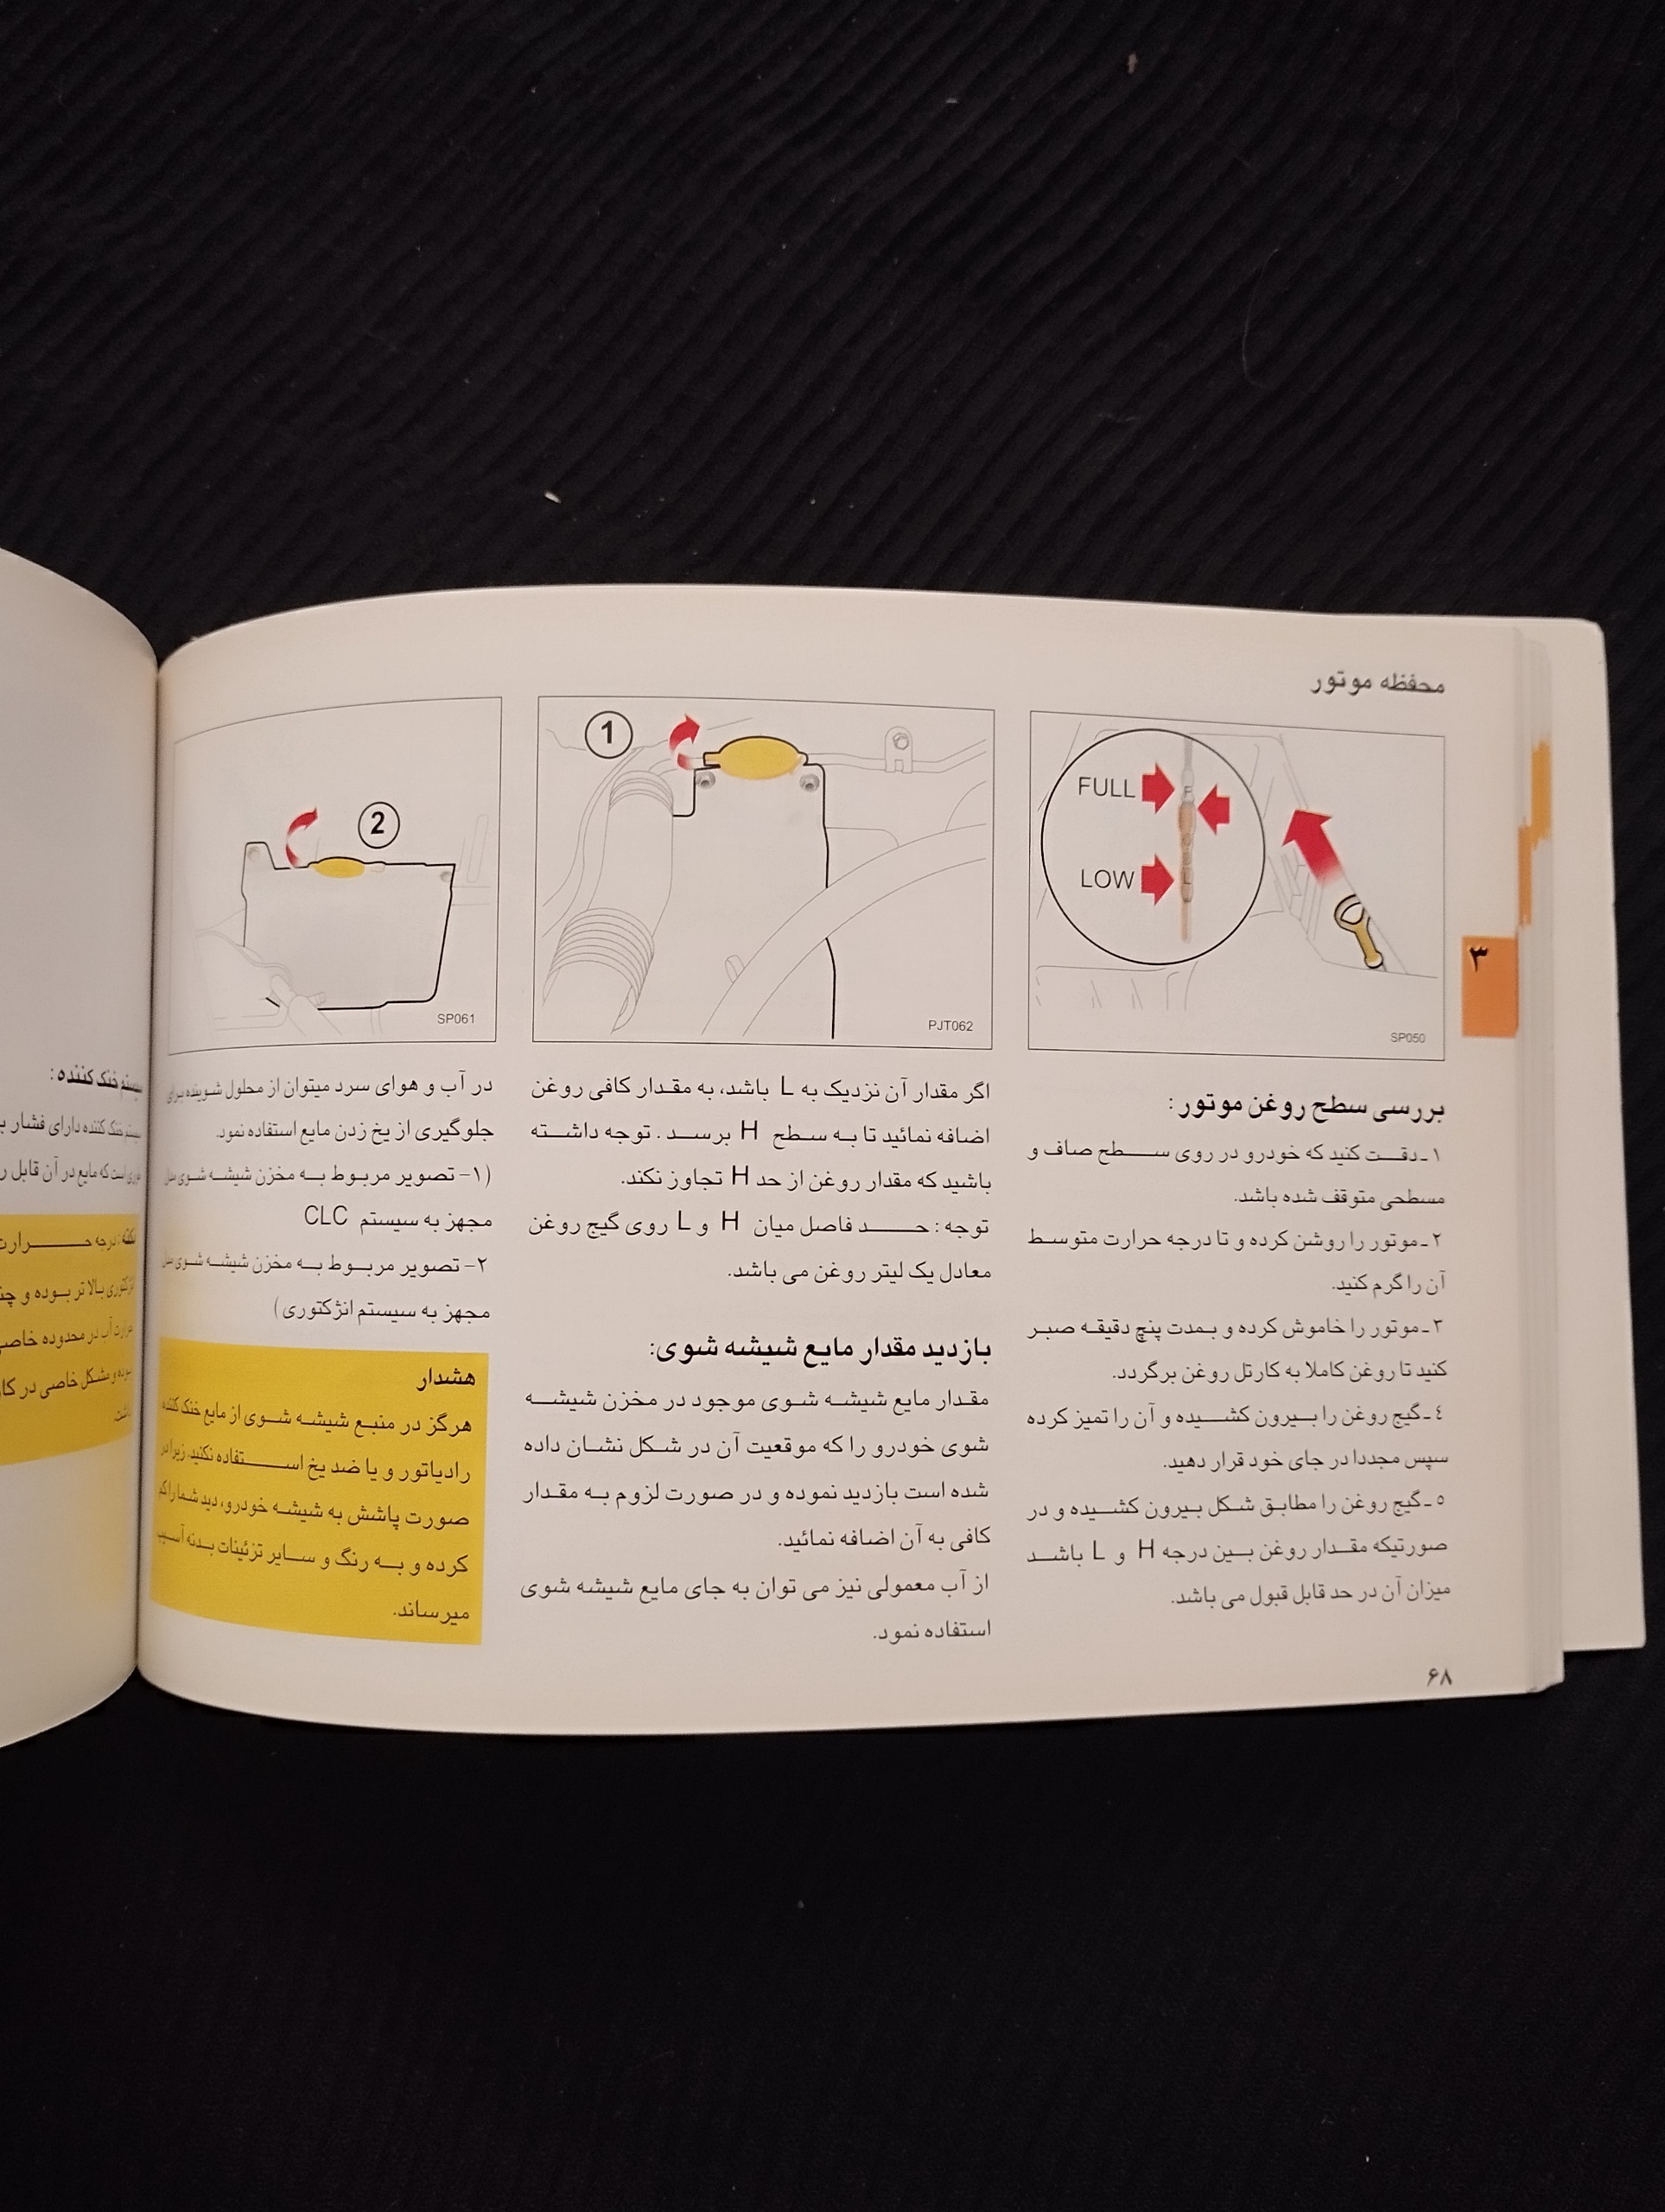 محفظه موتور
FULL
LOW
F
L
SP050
۳
بررسی سطح روغن موتور:
۱ـ دقت کنید که خودرو در روی سطح صاف و
مسطحی متوقف شده باشد.
۲ـ موتور را روشن کرده و تا درجه حرارت متوسط
آن را گرم کنید.
۳ـ موتور را خاموش کرده و بمدت پنچ دقیقه صبر
کنید تا روغن کاملا به کارتل روغن برگردد.
٤ـ گیج روغن را بیرون کشیده و آن را تمیز کرده
سپس مجددا در جای خود قرار دهید.
٥ـ گیج روغن را مطابق شکل بیرون کشیده و در
صورتیکه مقدار روغن بین درجه H و L باشد
میزان آن در حد قابل قبول می باشد.
1
PJT062
اگر مقدار آن نزدیک به L باشد، به مقدار کافی روغن
اضافه نمائید تا به سطح H برسد . توجه داشته
باشید که مقدار روغن از حد H تجاوز نکند.
توجه : حد فاصل میان H و L روی گیج روغن
معادل یک لیتر روغن می باشد.
بازدید مقدار مایع شیشه شوی:
مقدار مایع شیشه شوی موجود در مخزن شیشه
شوی خودرو را که موقعیت آن در شکل نشان داده
شده است بازدید نموده و در صورت لزوم به مقدار
کافی به آن اضافه نمائید.
از آب معمولی نیز می توان به جای مایع شیشه شوی
استفاده نمود.
2
SP061
در آب و هوای سرد میتوان از محلول شوینده برای
جلوگیری از یخ زدن مایع استفاده نمود.
(۱- تصویر مربوط به مخزن شیشه شوی مدل
مجهز به سیستم CLC
۲- تصویر مربوط به مخزن شیشه شوی مدل
مجهز به سیستم انژکتوری)
هشدار
هرگز در منبع شیشه شوی از مایع خنک کننده
رادیاتور و یا ضد یخ استفاده نکنید، زیرا در
صورت پاشش به شیشه خودرو، دید شما را کم
کرده و به رنگ و سایر تزئینات بدنه آسیب
میرساند.
۶۸
سیستم خنک کننده:
سیستم خنک کننده دارای فشار
است که مایع در آن قابل
نکته: درجه حرارت
انژکتوری بالا تر بوده و
حرارت آب در محدوده خاصی
بوده و مشکل خاصی در